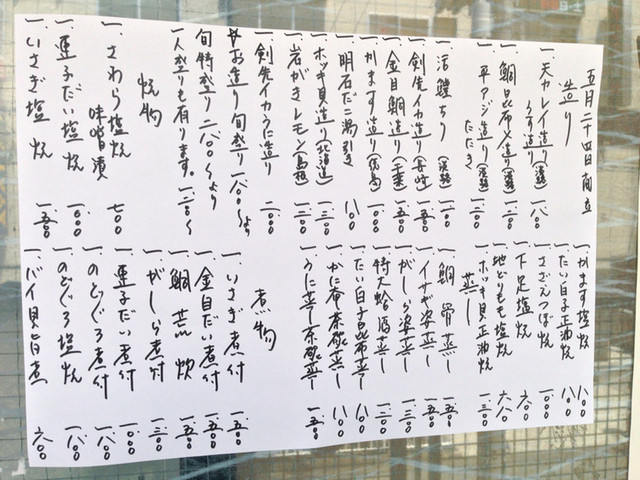 五月二十四日献立
造り
一、天カレイ造り(淡路) 一、八〇〇
うす造り
一、鯛昆布〆造り(淡路) 一、二〇〇
一、平アジ造り(淡路) 一、二〇〇
たたき
一、活鱧ちり(淡路)
一、剣先イカ造り(長崎) 一、五〇〇
一、金目鯛造り(千葉) 一、五〇〇
一、かます造り 一、〇〇〇
一、明石だこ湯引き 八〇〇
一、ホッキ貝造り(北海道) 一、三〇〇
一、岩がきレモン(鳥取) 一、二〇〇
一、剣先イカうに造り 二、〇〇〇
お造り旬盛り 一、八〇〇より
旬特盛り 二、八〇〇より
一人盛りも有ります。一、二〇〇〜
焼物
一、さわら塩焼 七〇〇
味噌漬
一、連子だい塩焼 一、〇〇〇
一、いさぎ塩焼 一、五〇〇
一、かます塩焼 八〇〇
一、たい白子正油焼 八〇〇
一、さざえつぼ焼 一、〇〇〇
一、下足塩焼 六〇〇
一、地どりもも塩焼 六八〇
一、ホッキ貝正油焼 一、三〇〇
蒸し
一、鯛骨蒸し 一、五〇〇
一、イサギ姿蒸し 一、五〇〇
一、がしら姿蒸し 一、三〇〇
一、特大蛤酒蒸し 一、二〇〇
一、たい白子昆布蒸し 一、〇〇〇
一、かに奄茶碗蒸し 八〇〇
一、うに蒸し茶碗蒸し 一、五〇〇
煮物
一、いさぎ煮付 一、五〇〇
一、金目だい煮付 一、五〇〇
一、鯛荒炊 一、五〇〇
一、がしら煮付 一、三〇〇
一、連子だい煮付 一、〇〇〇
一、のどぐろ煮付 一、八〇〇
一、のどぐろ塩焼 一、八〇〇
一、バイ貝旨煮 六〇〇